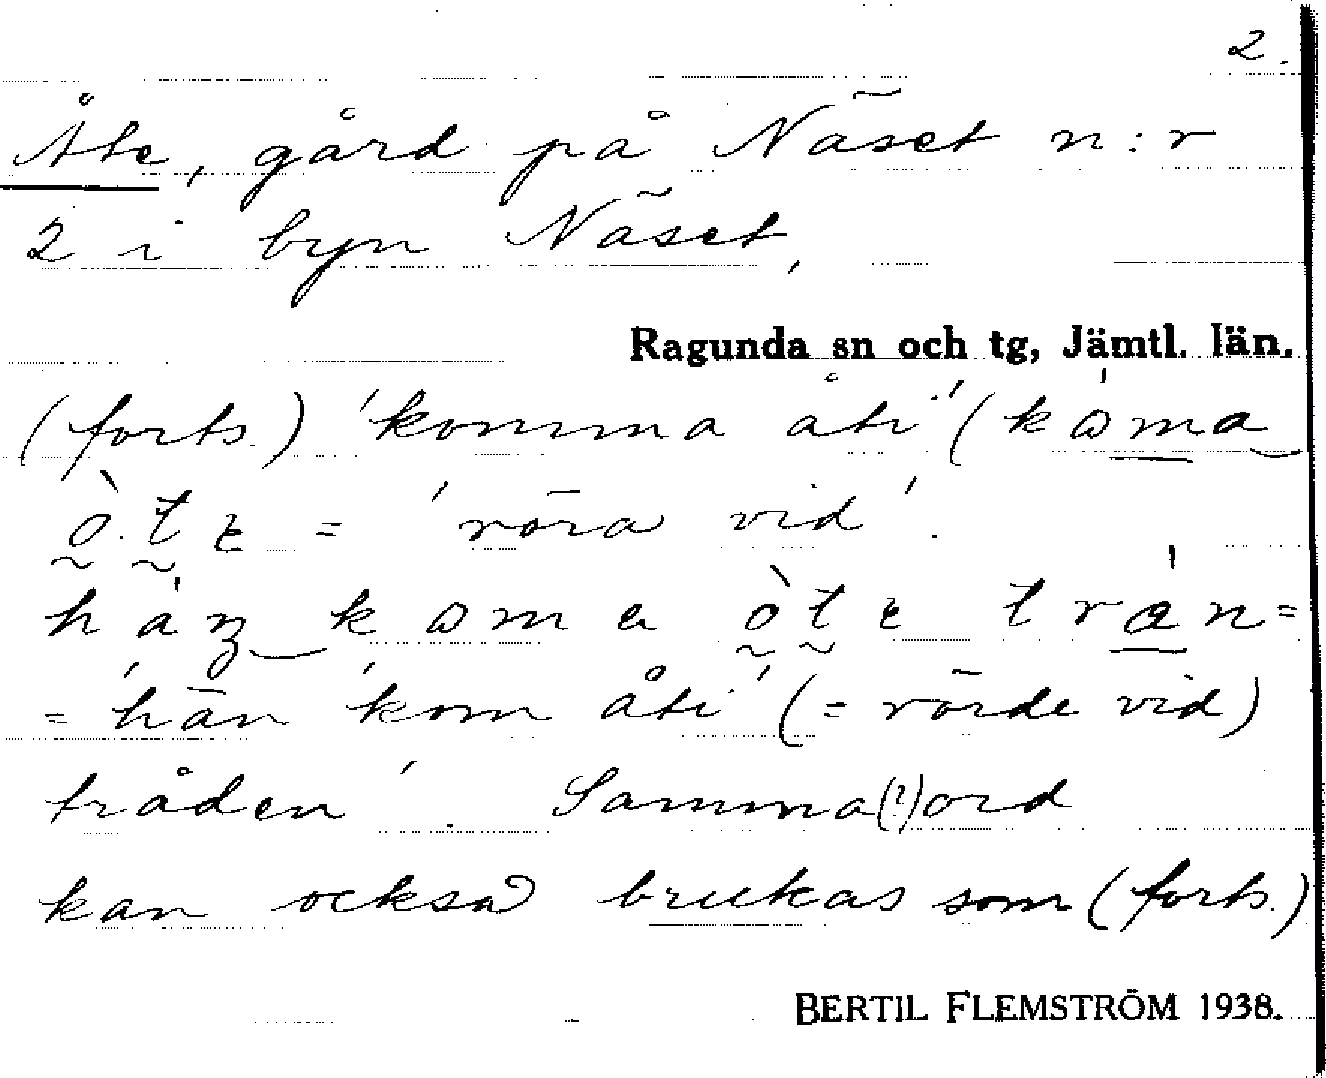 2.
Åte, gård på Näset n:r
2 i byn Näset,
Ragunda sn och tg, Jämtl. län.
(forts.) 'komma åti' (
= 'röra vid'.
= 'hän kom åti' (= rörde vid)
tråden'. Samma(?) ord
kan också brukas som (forts.)
BERTIL FLEMSTRÖM 1938.